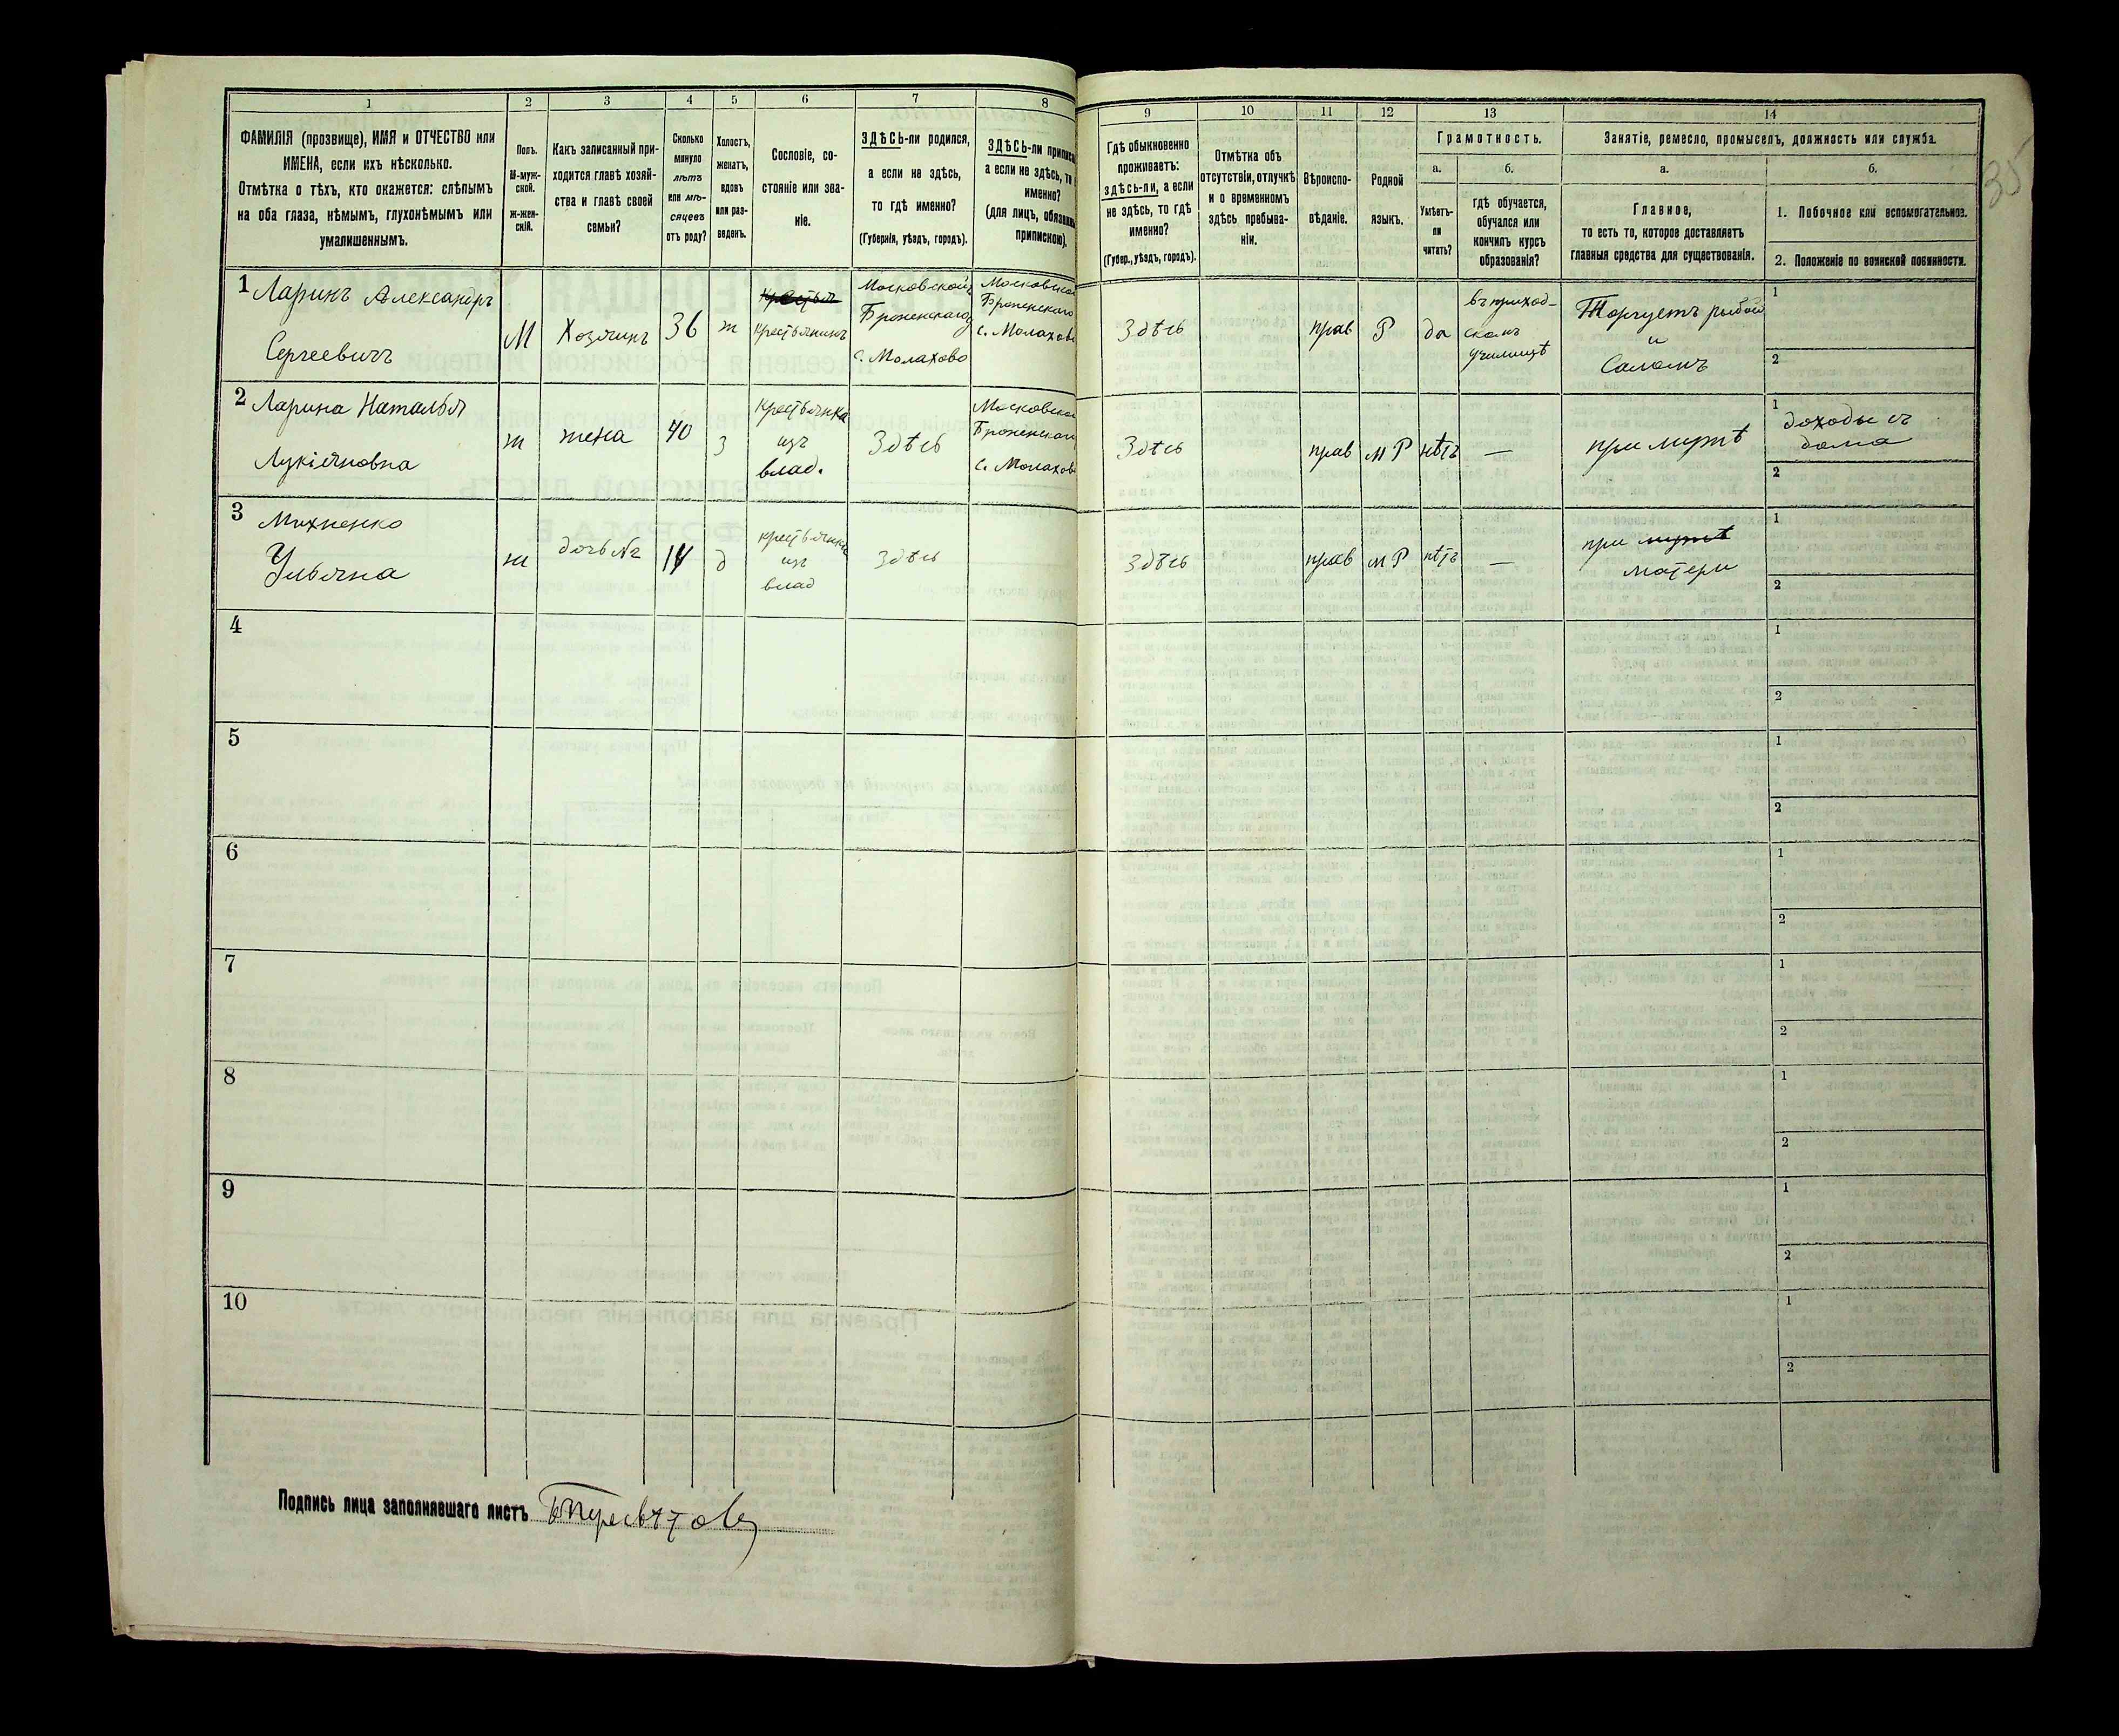 1
2
3
4
5
6
7
8
9
10
11
12
13
14
ФАМИЛІЯ (прозвище), ИМЯ и ОТЧЕСТВО или
ИМЕНА, если ихъ нѣсколько.
Отмѣтка о тѣхъ, кто окажется: слѣпымъ
на оба глаза, нѣмымъ, глухонѣмымъ или
умалишеннымъ.
Полъ.
М-муж-
ской.
Ж-жен-
скій.
Какъ записанный при-
ходится главѣ хозяй-
ства и главѣ своей
семьи?
Сколько
минуло
лѣтъ
или мѣ-
сяцевъ
отъ роду?
Холостъ,
женатъ,
вдовъ
или раз-
веденъ.
Сословіе, со-
стояніе или зва-
ніе.
ЗДѢСЬ-ли родился,
а если не здѣсь,
то гдѣ именно?
(Губернія, уѣздъ, городъ).
ЗДѢСЬ-ли
а если не здѣсь,
именно?
(для лицъ,
припискою).
Гдѣ обыкновенно
проживаетъ:
здѣсь-ли, а если
не здѣсь, то гдѣ
именно?
(Губер., уѣздъ, городъ).
Отмѣтка объ
отсутствіи, отлучкѣ
и о временномъ
здѣсь пребыва-
ніи.
Вѣроиспо-
вѣданіе.
Родной
языкъ.
Грамотность.
а.
Умѣетъ-
ли
читать?
б.
гдѣ обучается,
обучался или
кончилъ курсъ
образованія?
Занятіе, ремесло, промыселъ, должность или служба.
а.
Главное,
то есть то, которое доставляетъ
главныя средства для существованія.
б.
1. Побочное или вспомогательное.
2. Положеніе по воинской повинности.
35
1 Ларинъ Александръ
Сергеевичъ
М
Хозяинъ
36
ж
Крестьянинъ
Московской
Броненскаго
с. Молахово
Московской
Броненскаго
с. Молахово
Здѣсь
прав
Р
да
въ приход-
скомъ
училищѣ
Торгуетъ рыбой
и
Саломъ
1
2
2 Ларина Наталья
Лукіяновна
ж
жена
40
з
Крестьянка
изъ
влад.
Здѣсь
Московской
Броненскаго
с. Молахово
Здѣсь
прав
м Р
нѣтъ
—
при мужѣ
1 доходы съ
дома
2
3 Михненко
Ульяна
ж
дочь №2
14
д
крестьянка
изъ
влад
Здѣсь
Здѣсь
прав
м Р
нѣтъ
—
при мужѣ
матери
1
2
4
1
2
5
1
2
6
1
2
7
1
2
8
1
2
9
1
2
10
1
2
Подпись лица заполнявшаго листъ